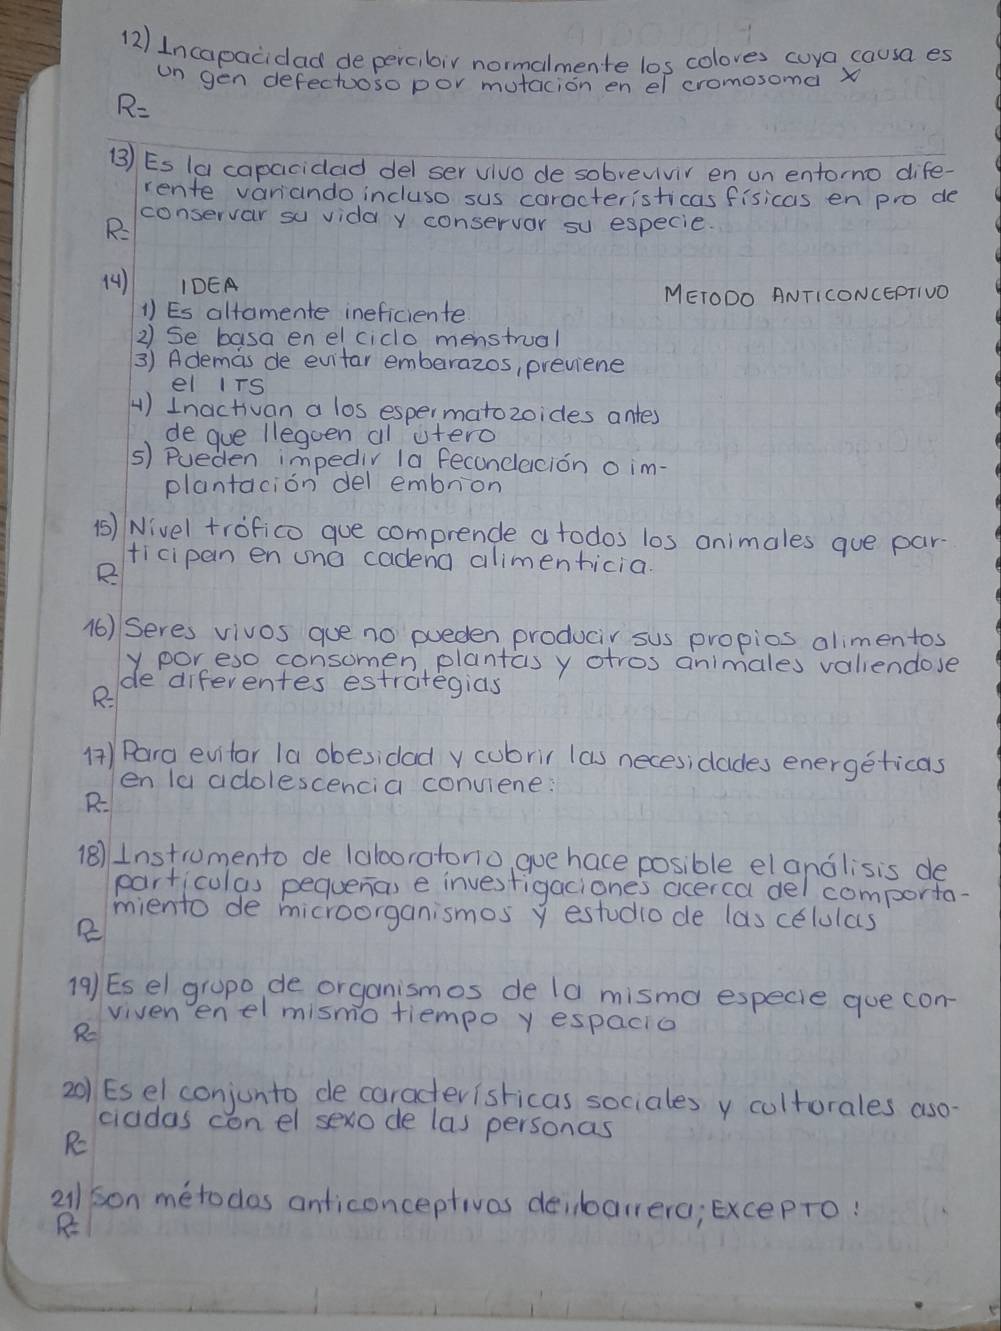 12) Incapacidad de percibir normalmente los colores cuya causa es
un gen defectuoso por mutación en el cromosoma X
R=
13) Es la capacidad del ser vivo de sobrevivir en un entorno dife-
rente variando incluso sus características físicas en pro de
conservar su vida y conservar su especie.
R=
14) IDEA METODO ANTICONCEPTIVO
1) Es altamente ineficiente
2) Se basa en el ciclo menstrual
3) Además de evitar embarazos, previene
el ITS
4) Inactivan a los espermatozoides antes
de que lleguen al útero
5) Pueden impedir la fecundación o im-
plantación del embrion
15) Nivel trófico que comprende a todos los animales que par-
ticipan en una cadena alimenticia.
R=
16) Seres vivos que no pueden producir sus propios alimentos
y por eso consumen plantas y otros animales valiendose
de diferentes estrategias
R=
17) Para evitar la obesidad y cubrir las necesidades energéticas
en la adolescencia conviene:
R=
18) Instrumento de laboratorio que hace posible el análisis de
partículas pequeñas e investigaciones acerca del comporta-
miento de microorganismos y estudio de las células
R=
19) Es el grupo de organismos de la misma especie que con-
viven en el mismo tiempo y espacio
R=
20) Es el conjunto de características sociales y culturales aso-
ciadas con el sexo de las personas
R=
21) Son métodos anticonceptivos de barrera; EXCEPTO:
R=